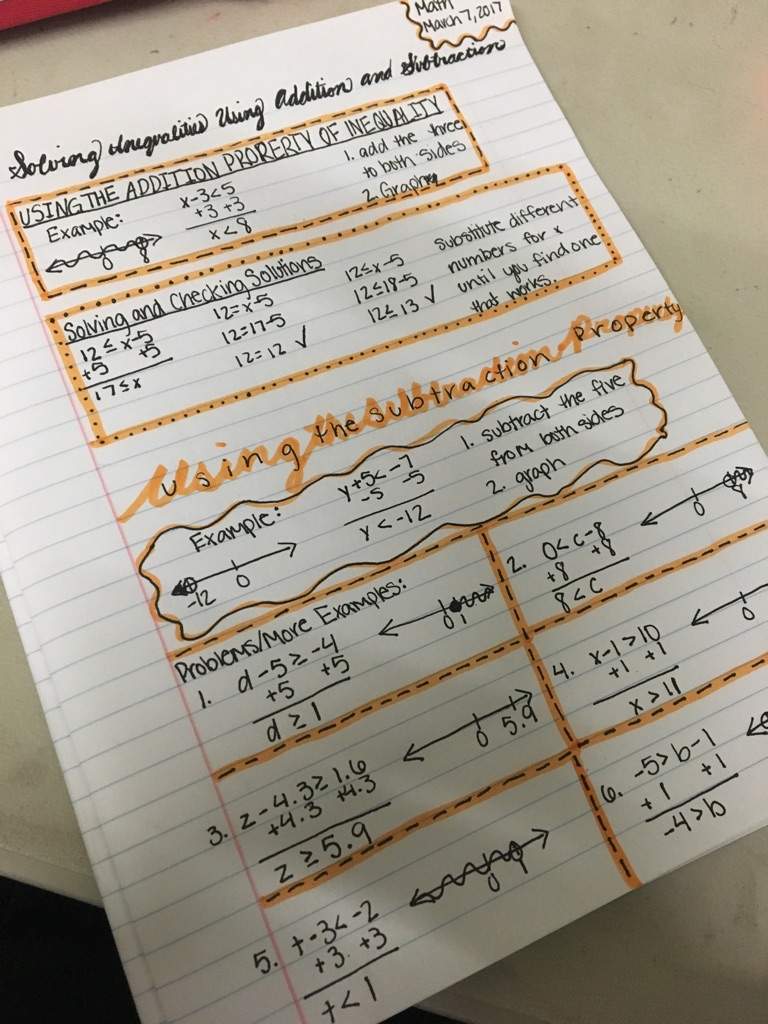 Math
March 7, 2017
Solving Inequalities Using Addition and Subtraction
USING THE ADDITION PROPERTY OF INEQUALITY
Example:
x-3<5
+3 +3
x<8
0 8
1. add the three
to both sides
2. Graph
Solving and Checking Solutions
12≤x-5
+5 +5
17≤x
12=x-5
12=17-5
12=12 ✓
12≤x-5
12≤18-5
12≤13 ✓
substitute different
numbers for x
until you find one
that works.
Using the Subtraction Property
Example:
y+5<-7
-5 -5
y<-12
-12 0
1. subtract the five
from both sides
2. graph
Problems/More Examples:
1. d-5≥-4
+5 +5
d≥1
0 1
2. 0<c-8
+8 +8
8<c
0 8
3. z-4.3≥1.6
+4.3 +4.3
z≥5.9
0 5.9
4. x-1>10
+1 +1
x>11
0
5. t-3<-2
+3 +3
t<1
0 1
6. -5>b-1
+1 +1
-4>b